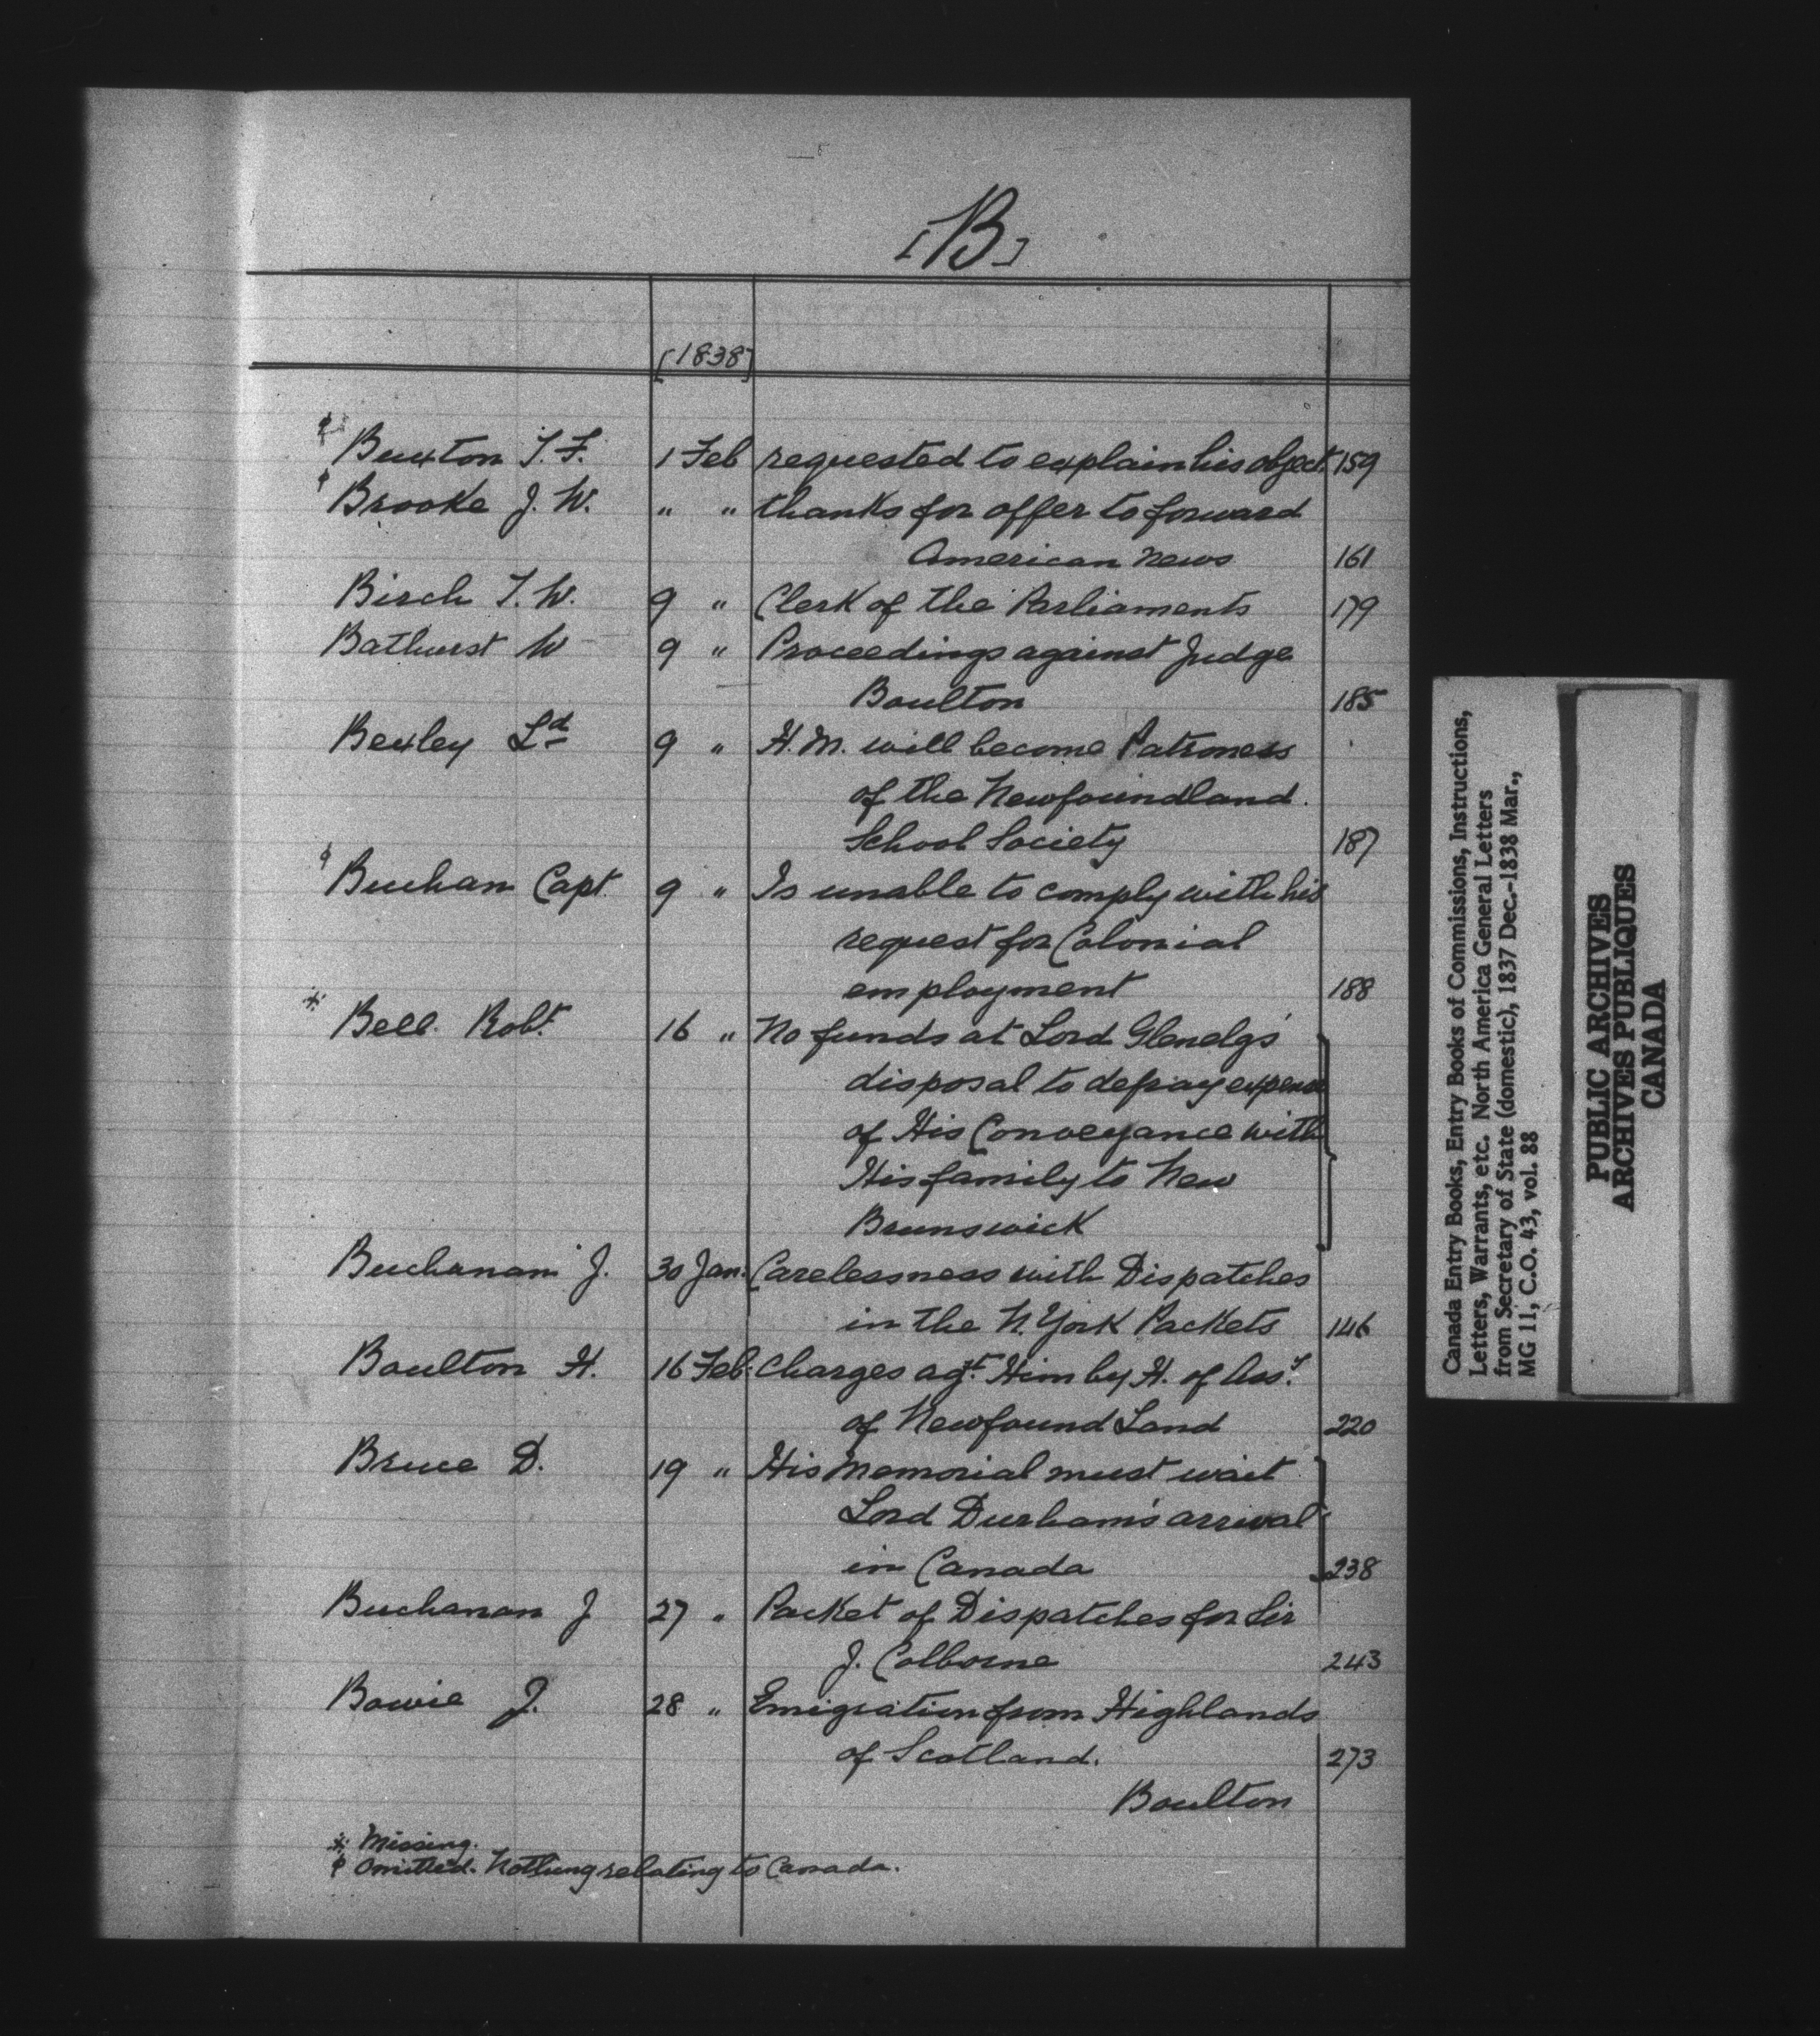 [B]
[1838]
φ Buxton T. F. 1 Feb requested to explain his object 159
φ Brooke J. W. " " thanks for offer to forward
American News 161
Birch T. W. 9 " Clerk of the Parliaments 179
Bathurst W 9 " Proceedings against Judge
Boulton 185
Bexley Ld 9 " H. M. will become Patroness
of the Newfoundland.
School Society 187
φ Buchan Capt. 9 " Is unable to comply with his
request for Colonial
employment 188
* Bell. Robt. 16 " No funds at Lord Glenelg's
disposal to defray expense
of His Conveyance with
His family to New
Brunswick
Buchanan J. 30 Jan. Carelessness with Dispatches
in the N. York Packets 146
Boulton H. 16 Feb. Charges agt. Him by H. of Assy.
of Newfound Land 220
Bruce D. 19 " His Memorial must wait
Lord Durham's arrival
in Canada 238
Buchanan J 27 " Packet of Dispatches for Sir
J. Colborne 243
Bowie J. 28 " Emigration from Highlands
of Scotland. 273
Boulton
* Missing.
φ Omitted. Nothing relating to Canada.
Canada Entry Books, Entry Books of Commissions, Instructions,
Letters, Warrants, etc. North America General Letters
from Secretary of State (domestic), 1837 Dec.-1838 Mar.,
MG 11, C.O. 43, vol. 88
PUBLIC ARCHIVES
ARCHIVES PUBLIQUES
CANADA